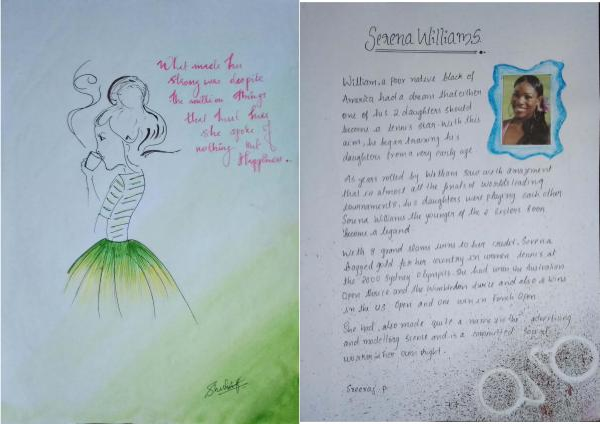 What made her
strong was despite
the million things
that hurt her
she spoke of
nothing but
Happiness..
Serena Williams
William, a poor native black of
America had a dream that either
one of his 2 daughters should
become a tennis star. With this
aim, he began training his
daughters from a very early age
As years rolled by William saw with amazement
that in almost all the finals of worlds leading
tournaments, his daughters were playing each other.
Serena Williams the younger of the 2 sisters soon
became a legend
With 7 grand slams to her credit, Serena
bagged gold for her country in women tennis at
the 2000 Sydney Olympics. She had won the Australian
Open thrice and the Wimbledon twice and also 2 wins
in the U.S. Open and one win in French Open.
She had also made quite a name in the advertising
and modelling scene and is a committed social
worker in her own right.
Sreeraj. P.